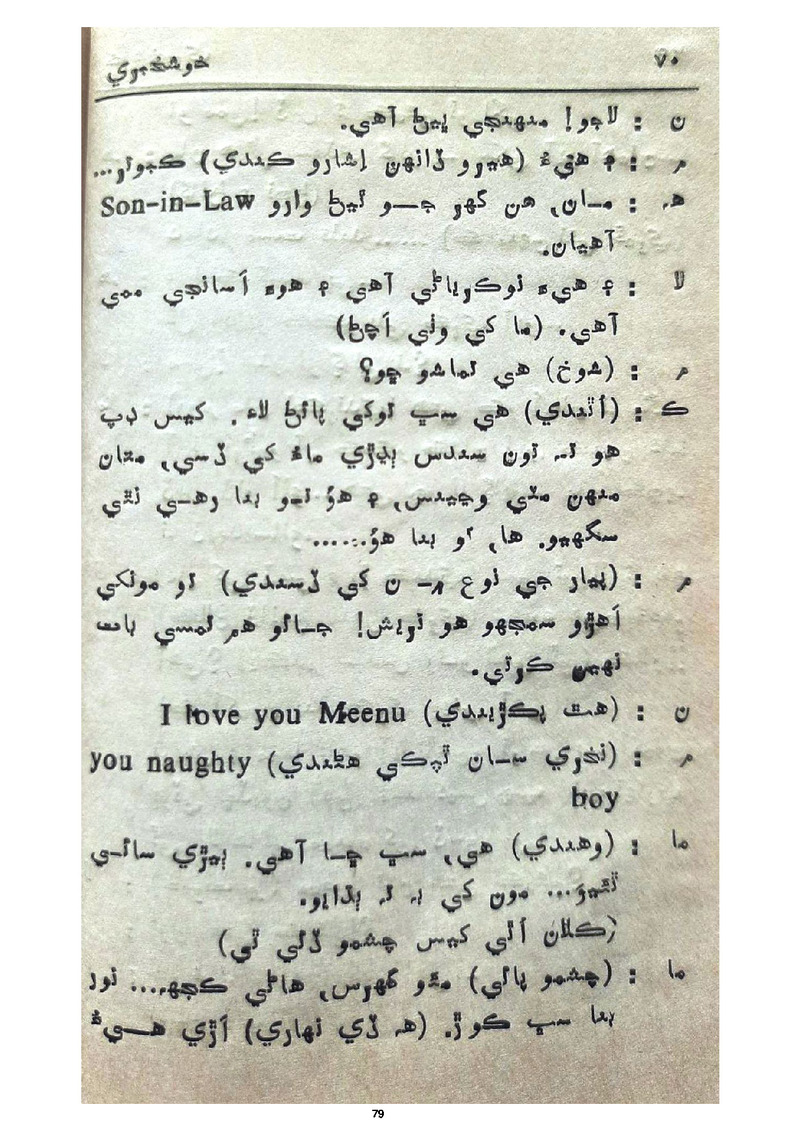 ۷۰ خوشخبري
ن : لاجو! منهنجي ڀيڻ آهي.
م : ۽ هيءُ (هيرو ڏانهن اِشارو ڪندي) ڪبوتر...
هہ : مـان، هن گهر جــو ٿيڻ وارو Son-in-Law
آهيان.
لا : ۽ هيءَ نوڪرياڻي آهي ۽ هوءَ اَسانجي ممي
آهي. (ما کي وٺي اَچڻ)
م : (شوخ) هي تماشو ڇو؟
ڪ : (اُٿندي) هي سڀ توکي پائڻ لاءِ. کيس ڊپ
هو تہ تون سندس ٻڍڙي ماءُ کي ڏسي، متان
منهن مٽي وڃيندس، ۽ هوُ تـو بنا رهـي نٿي
سگهيو. ها، تو بنا هوُ......
م : (پيار جي نوع ۾- ن کي ڏسندي) تو مونکي
اَهڙو سمجهو هو نريش! جـائو هم تمسي بات
نهين ڪرتي.
ن : (هٿ پڪڙيندي) I love you Meenu
م : (نخري سـان ٿپڪي هڻندي) you naughty
boy
ما : (وهندي) هي، سڀ ڇـا آهي. ٻيڙي سائـي
ٿئيو... مون کي بہ تہ ٻڌايو.
(ڪلان اُٿي کيس چشمو ڏئي ٿي)
ما : (چشمو پائي) مئو گهرس، هاڻي ڪجهہ... نور
بنا سڀ ڪوڙ. (هہ ڏي نهاري) اَڙي هـــيءُ
79